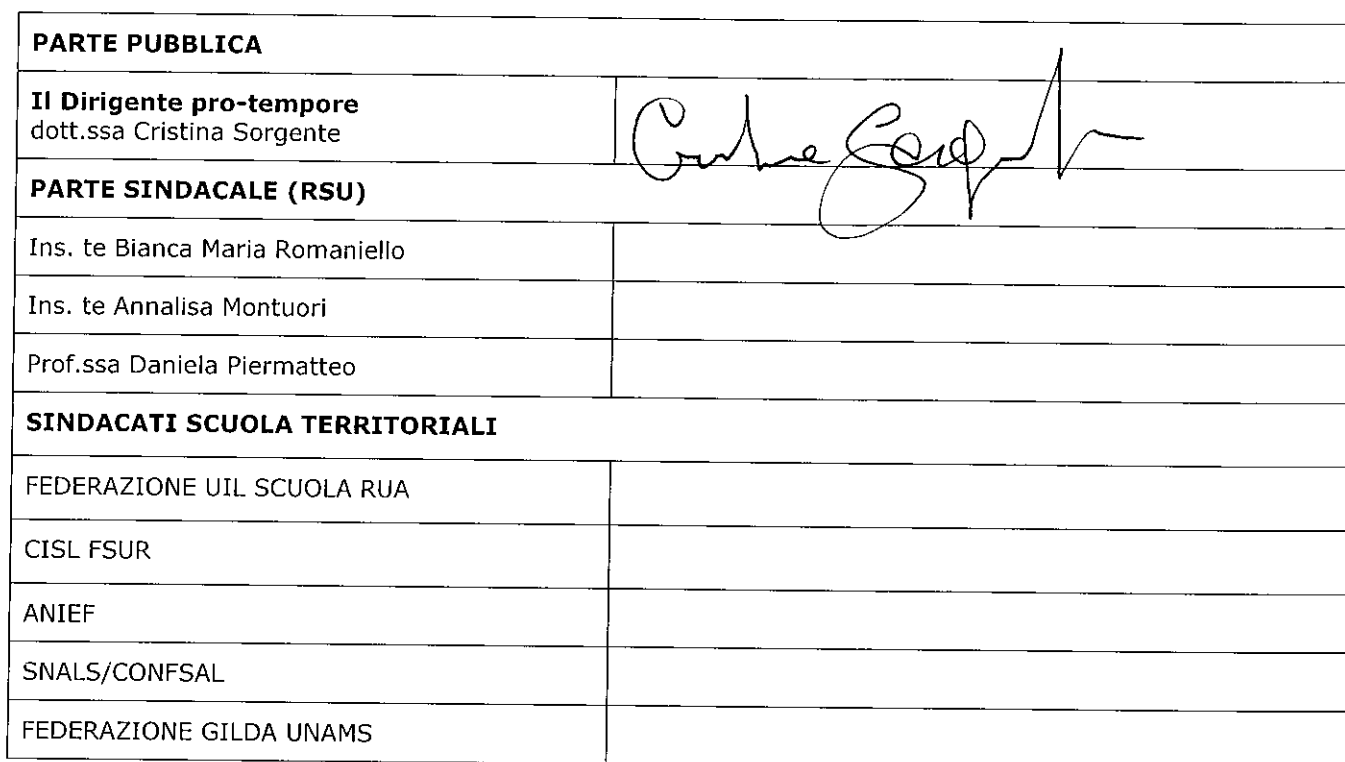 PARTE PUBBLICA
Il Dirigente pro-tempore
dott.ssa Cristina Sorgente
Cristina Sorgente
PARTE SINDACALE (RSU)
Ins. te Bianca Maria Romaniello
Ins. te Annalisa Montuori
Prof.ssa Daniela Piermatteo
SINDACATI SCUOLA TERRITORIALI
FEDERAZIONE UIL SCUOLA RUA
CISL FSUR
ANIEF
SNALS/CONFSAL
FEDERAZIONE GILDA UNAMS